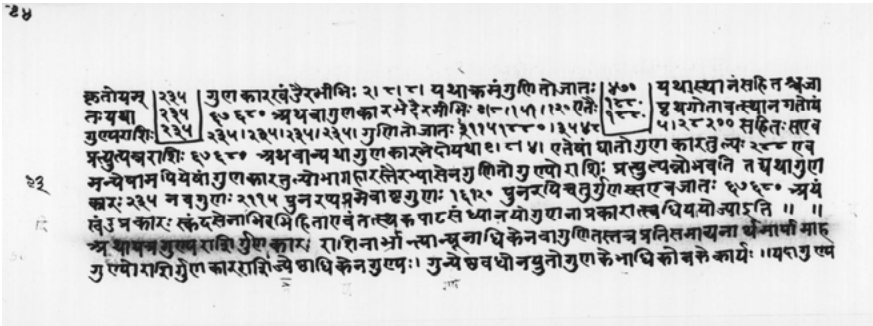 कृतोयम् |२३५| गुणकारखंडैरमीभिः २।८।८। यथाक्रमंगुणितोजातः |४७० यथास्थानंसहितश्चजा
तःयथा |२३५| ६७६८० अथवागुणकारभेदैरमीभिः ९।८।१५१।१२० एतैः १८८०
गुण्यराशिः |२३५| २३५।२३५।२३५।२३५। गुणितोजातः २११५।१८८०।३५४८ ५।२८२०० सहितःसएव
प्रत्युत्पन्नराशिः ६७६८० अथवान्यथागुणकारभेदोयथा ९।८।४। एतेषांघातोगुणकारतुल्पः २८८ एव
मन्येषामपियेषांगुणकारतुन्योभागहारस्तैरभ्यासेनगुणितोगुण्योराशिः प्रत्युत्पन्नोभवति तद्यथागुण
कारः २३५ नवगुणः २११५ पुनरप्य गुणः १६९२० पुनरपिचतुर्गुणःसएवजातः ६७६८० अयं
खंडप्रकारः स्कंदसेनादिभिरभिहिताएवंतत्स्थकपाटसंध्यानयोगुणनाप्रकारास्वधिययोज्याइति ॥ ॥
अथायत्रगुण्यराशिर्गुणकारः राशिनाभ्रान्त्यान्यूनाधिकेनवागुणितस्तत्रप्रतिसमाधनार्थमार्यामाह
गुण्योराशिर्गुणकारराशिज्येष्ठाधिकेनगुण्यः। गुन्येष्टवधोनयुतोगुणकेभाधिकोनकेकार्यः ॥यदागुण्य
२३